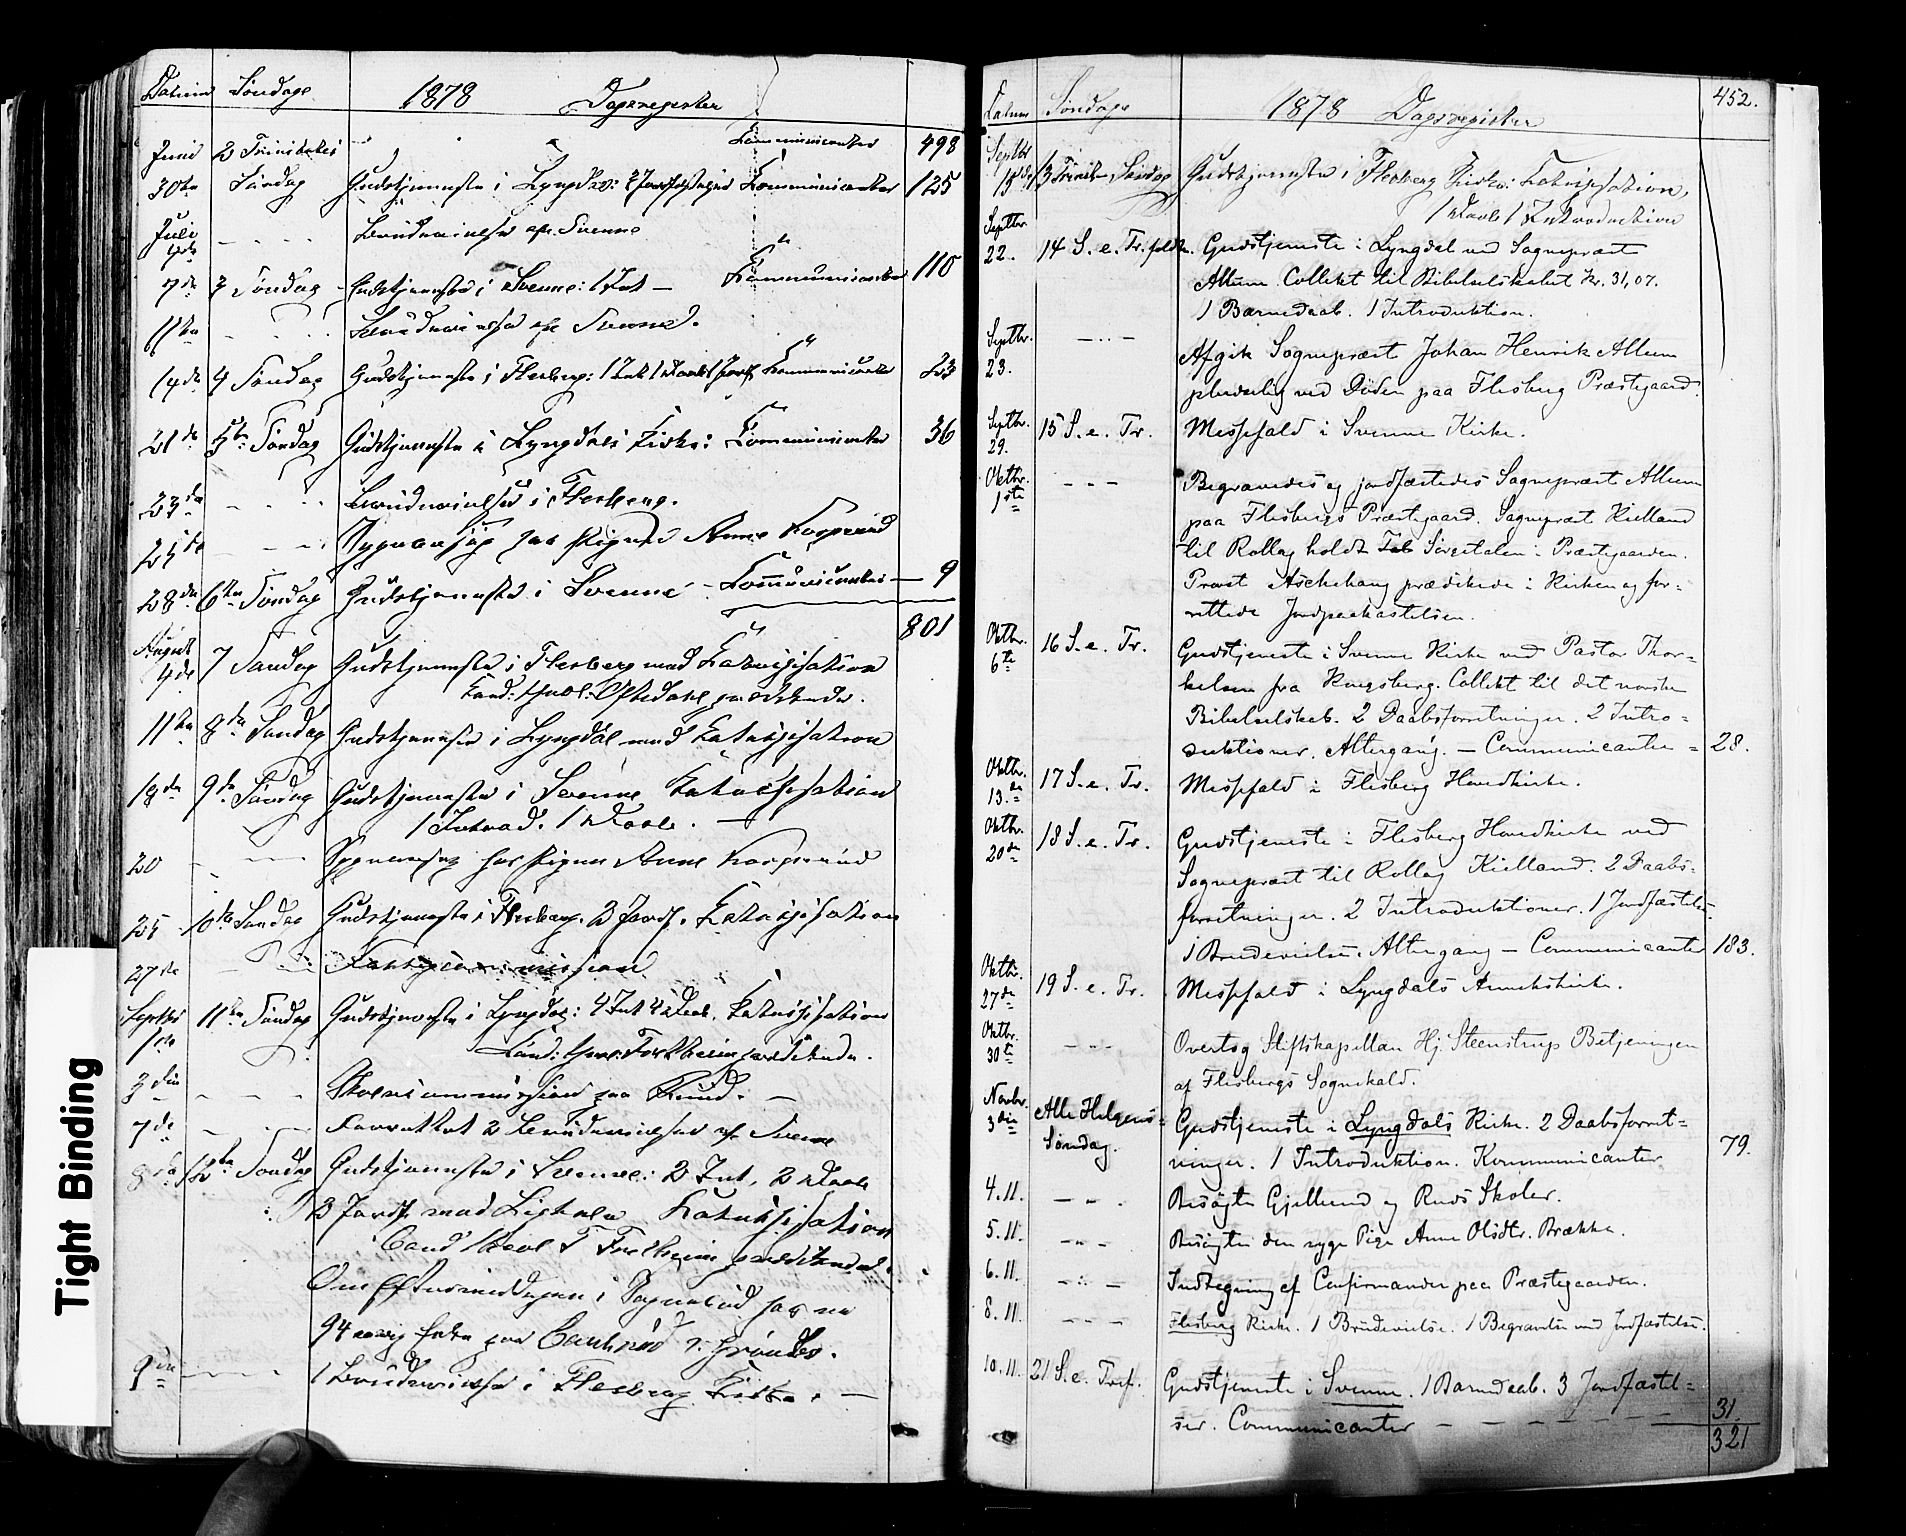 Datum Søndage 1878 Dagsregister
Juni 2 Trinitatis Communicanter 498
30te Søndag Gudstjeneste i Lyngdal: 2 Jordfæstelser Kommunicanter 125
Juli
4de Brudevielse af Svenne
7de 3 Søndag Gudstjeneste i Svenne: 1 Int — Kommunicanter 110
11te Brudevielse af Svenne.
14de 4 Søndag Gudstjeneste i Flesberg: 1 Int 1 Daab 1 Jordf. Kommunicanter 23
21de 5te Søndag Gudstjeneste i Lyngdals Kirke: Kommunicanter 36
23de Brudevielse i Flesberg.
25de Sygebesøg hos Pigen Anne
28de 6te Søndag Gudstjeneste i Svenne - Communicanter — 9
801
August
4de 7 Søndag Gudstjeneste i Flesberg med Katechisation
Cand: theol: Oftedahl prædikede.
11te 8de Søndag Gudstjeneste i Lyngdal med Katechisation
18de 9de Søndag Gudstjeneste i Svenne Katechisation
1 Introd. 1 Daab. —
20 Sygebesøg hos Pigen Anne
25 10de Søndag Gudstjeneste i Flesberg. 3 Jordf. Katechisation
27de
Septbr
1ste 11te Søndag Gudstjeneste i Lyngdal: 4 Int 4 Daab. Katechisation
Cand: theol: prædikede.
3die Skolecommission paa Ruud. —
7de Forrettet 2 Brudevielser af Svenne
8de 12te Søndag Gudstjeneste i Svenne: 2 Int, 2 Daab
3 Jordf med Ligtale Katechisation
Cand theol T prædikede.
Om Eftermiddagen i hos en
94 aarig Enke paa
9de 1 Brudevielse i Flesberg Kirke. —
452.
Datum Søndage 1878 Dagsregister
Septbr
15de 13 Trinit. Søndag Gudstjeneste i Flesberg Kirke: Katechisation,
1 Daab 1 Introduction
Septbr.
22. 14 S. e. Tr. holdtes Gudstjeneste i Lyngdal ved Sognepræst
Allum. Collekt til Bibelselskabet Kr. 31,07.
1 Barnedaab. 1 Introduktion.
Septbr.
23. — .. — Afgik Sognepræst Johan Henrik Allum
pludselig ved Døden paa Flesberg Præstegaard.
Septbr.
29. 15 S. e. Tr. Messefald i Svenne Kirke.
Oktbr.
1ste - - - Begravedes og jordfæstedes Sognepræst Allum
paa Flesbergs Præstegaard. Sognepræst Kielland
til Rollag holdt Sørgetalen i Præstegaarden.
Provst Aschehoug prædikede i Kirken og for-
rettede Jordpaakastelsen.
Oktbr.
6te 16 S. e. Tr. Gudstjeneste i Svenne Kirke ved Pastor Thor-
kelsen fra Kongsberg. Collekt til det norske
Bibelselskab. 2 Daabsforretninger. 2 Intro=
duktioner. Altergang. — Communicanter = 28.
Oktbr.
13de 17 S. e. Tr. Messefald i Flesberg Hovedkirke.
Oktbr.
20de 18 S. e. Tr. Gudstjeneste i Flesberg Hovedkirke ved
Sognepræst til Rollag Kielland. 2 Daabs-
forretninger. 2 Introduktioner. 1 Jordfæstelse.
1 Brudevielse. Altergang — Communicanter 183.
Oktbr.
27de 19 S. e. Tr. Messefald i Lyngdals Annekskirke.
Oktbr.
30te - - - Overtog Stiftskapellan Hj. Steenstrup Betjeningen
af Flesbergs Sognekald.
Novbr.
3die Alle Helgens= Søndag. Gudstjeneste i Lyngdals Kirke. 2 Daabsforret=
ninger. 1 Introduktion. Kommunicanter 79.
4.11. - - . Besøgte Gjellerud og Ruuds Skoler.
5.11. - .. - Besøgte den syge Pige Anne Olsdtr. Brække.
6.11. - .. - Indtegning af Confirmander paa Præstegaarden.
8.11. - - - Flesberg Kirke. 1 Brudevielse. 1 Begravelse med Jordfæstelse.
10.11. 21 S. e. Tref. Gudstjeneste i Svenne. 1 Barnedaab. 3 Jordfæstel=
ser. Communicanter — — — — — — 31.
321
Tight Binding